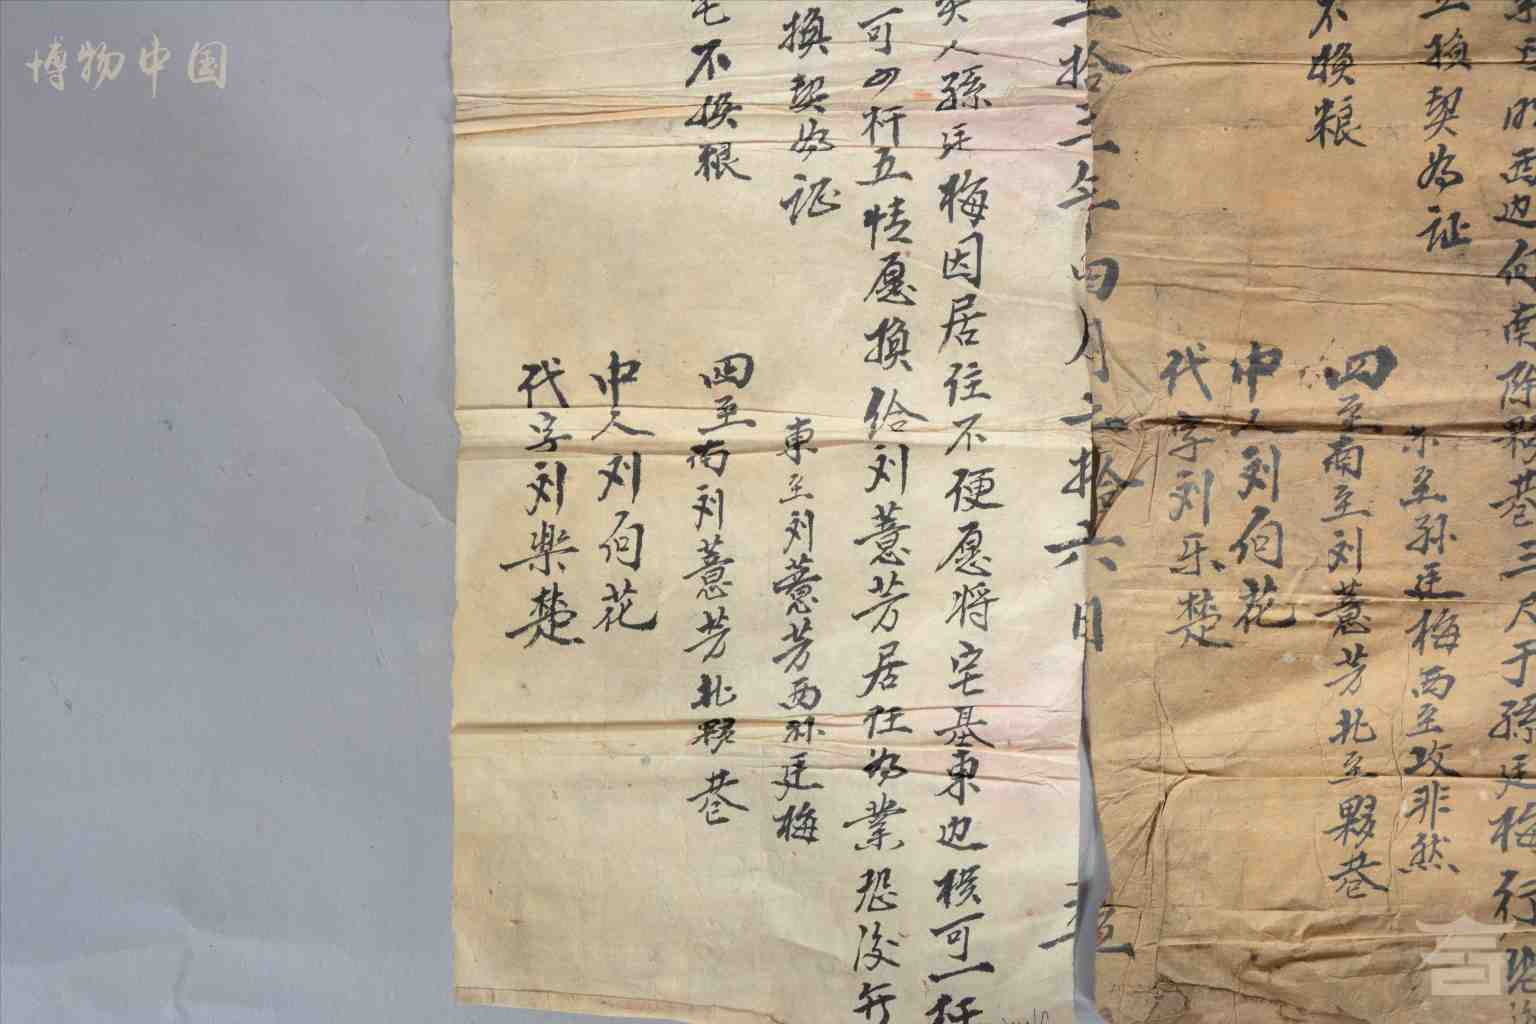 博物中国
行
系至明西边何南陈夥巷三尺于孫廷梅
換契为証
尔至孙廷梅西至攻非然
不换粮
四至南至刘薏芳北至夥巷
中人刘向花
代字刘乐楚
拾三年四月二拾六日 立
人孫廷梅因居住不便愿将宅基東边横可一杆
可四杆五情愿换给刘薏芳居住为業恐後
換契为证
東至刘薏芳西孙廷梅
宅不换粮
四至南刘薏芳北夥巷
中人刘向花
代字刘樂楚